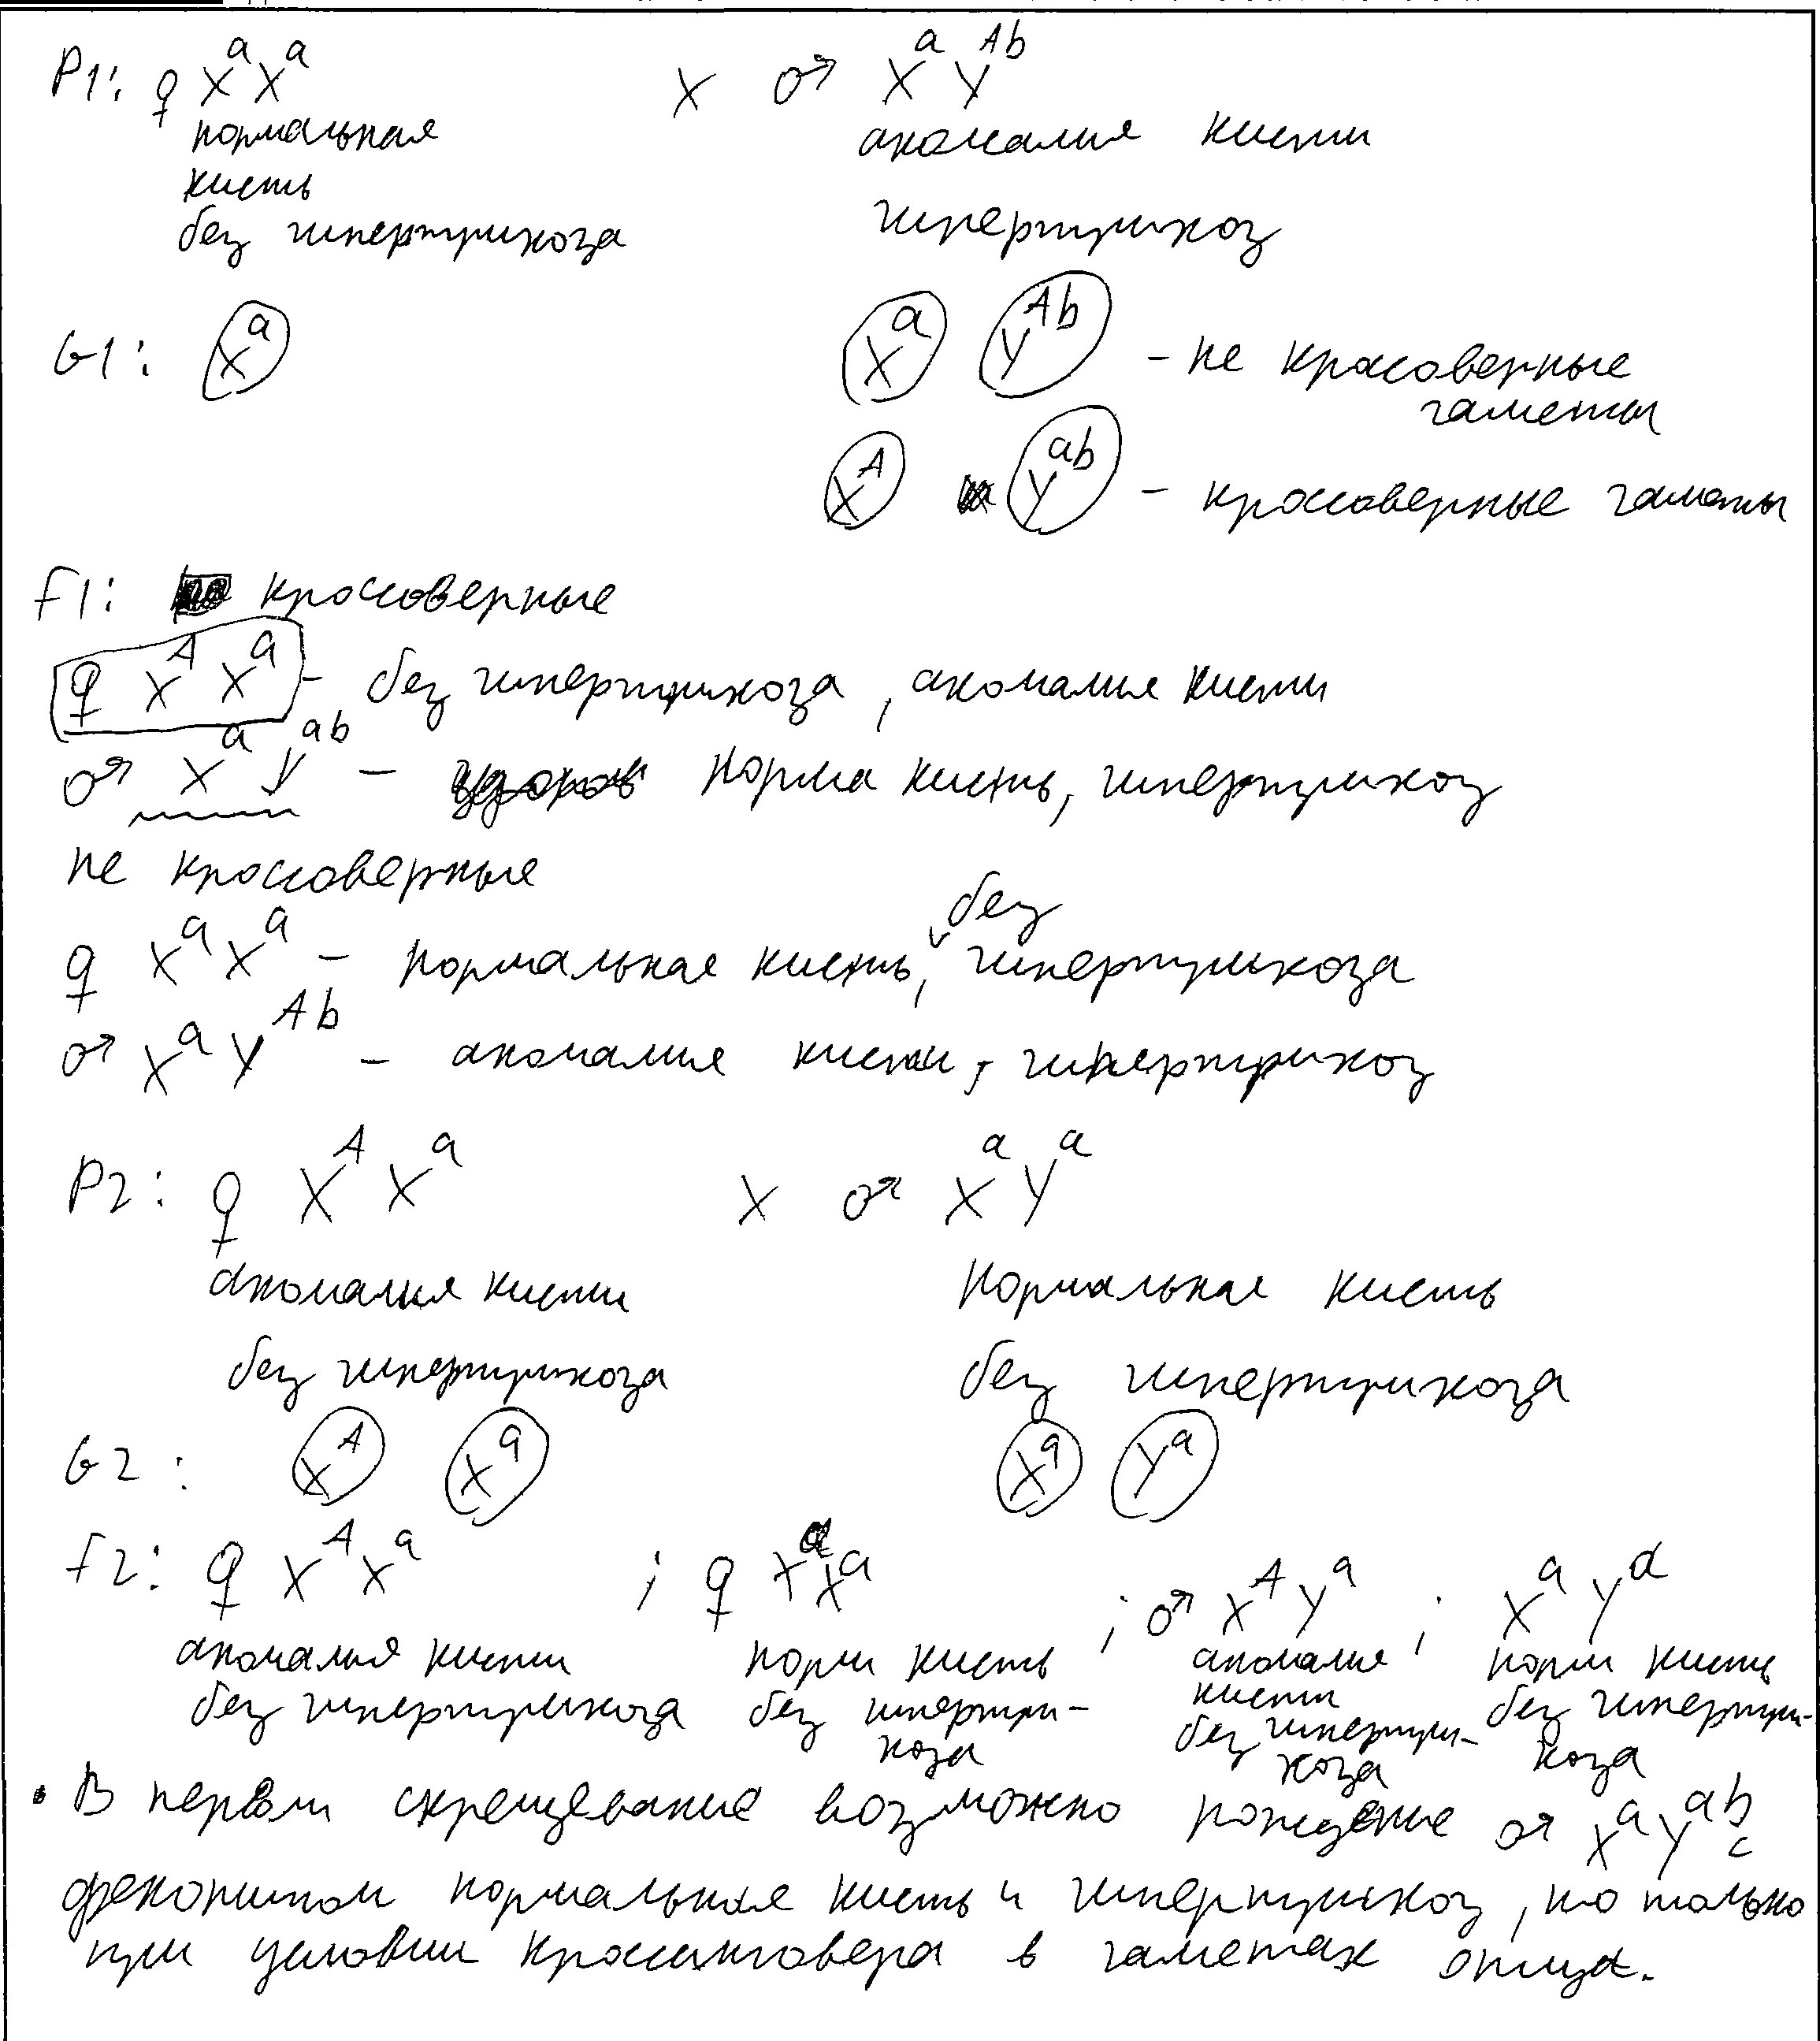 P1: ♀ XᵃXᵃ × ♂ XᵃYᴬᵇ
нормальная аномалия кисти
кисть
без гипертрихоза гипертрихоз
G1: Xᵃ Xᵃ Yᴬᵇ – не кросоверные
гаметы
Xᴬ Yᵃᵇ – кроссоверные гаметы
F1: кроссоверные
♀ XᴬXᵃ – без гипертрихоза, аномалия кисти
♂ XᵃYᵃᵇ – норма кисть, гипертрихоз
не кроссоверные
♀ XᵃXᵃ – нормальная кисть, без гипертрихоза
♂ XᵃYᴬᵇ – аномалия кисти, гипертрихоз
P2: ♀ XᴬXᵃ × ♂ XᵃYᵃ
аномалия кисти нормальная кисть
без гипертрихоза без гипертрихоза
G2: Xᴬ Xᵃ Xᵃ Yᵃ
F2: ♀ XᴬXᵃ ; ♀ XᵃXᵃ ; ♂ XᴬYᵃ ; XᵃYᵃ
аномалия кисти норм кисть аномалия кисти норм кисть
без гипертрихоза без гипертри- без гипертри- без гипертри-
коза хоза хоза
В первом скрещевание возможно рождение ♂ XᵃYᵃᵇ с
фенотипом нормальная кисть и гипертрихоз, но только
при условии кроссинговера в гаметах отца.